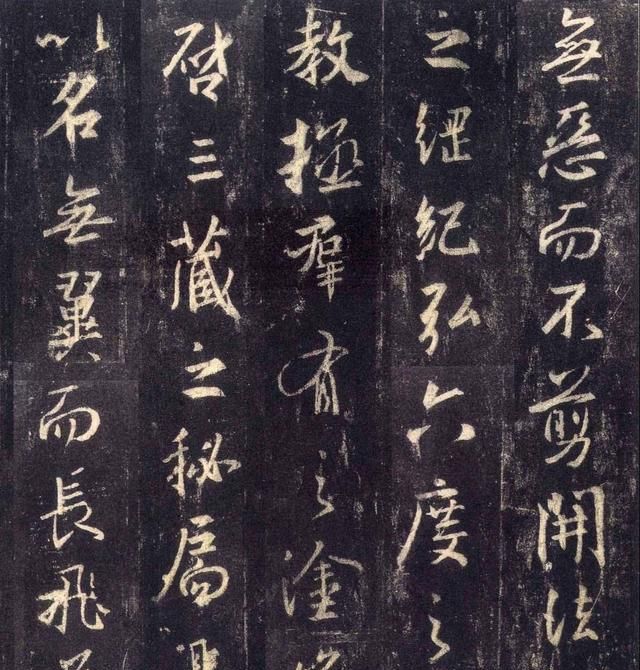 無惡而不剪開法
之綱紀弘六度之
教拯羣有之塗
啓三藏之秘扃
以名無翼而長飛